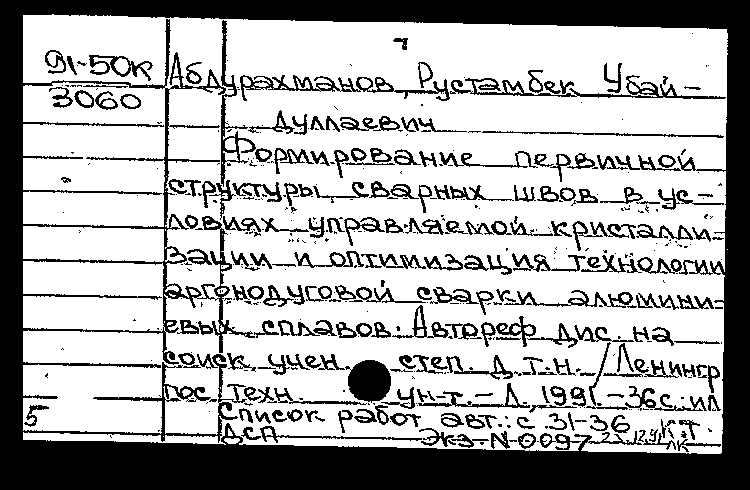 91-50к Абдурахманов, Рустамбек Убай-
3060
дуллаевич
Формирование первичной
структуры сварных швов в ус-
ловиях управляемой кристалли-
зации и оптимизация технологии
аргонодуговой сварки алюмини-
евых сплавов. Автореф дис. на
соиск учен. степ. д.т.н. / Ленингр
гос техн. ун-т. - Л., 1991 - 36с.: ил
5 Список работ авт.: с.31-36
ДСП Экз-N-0097